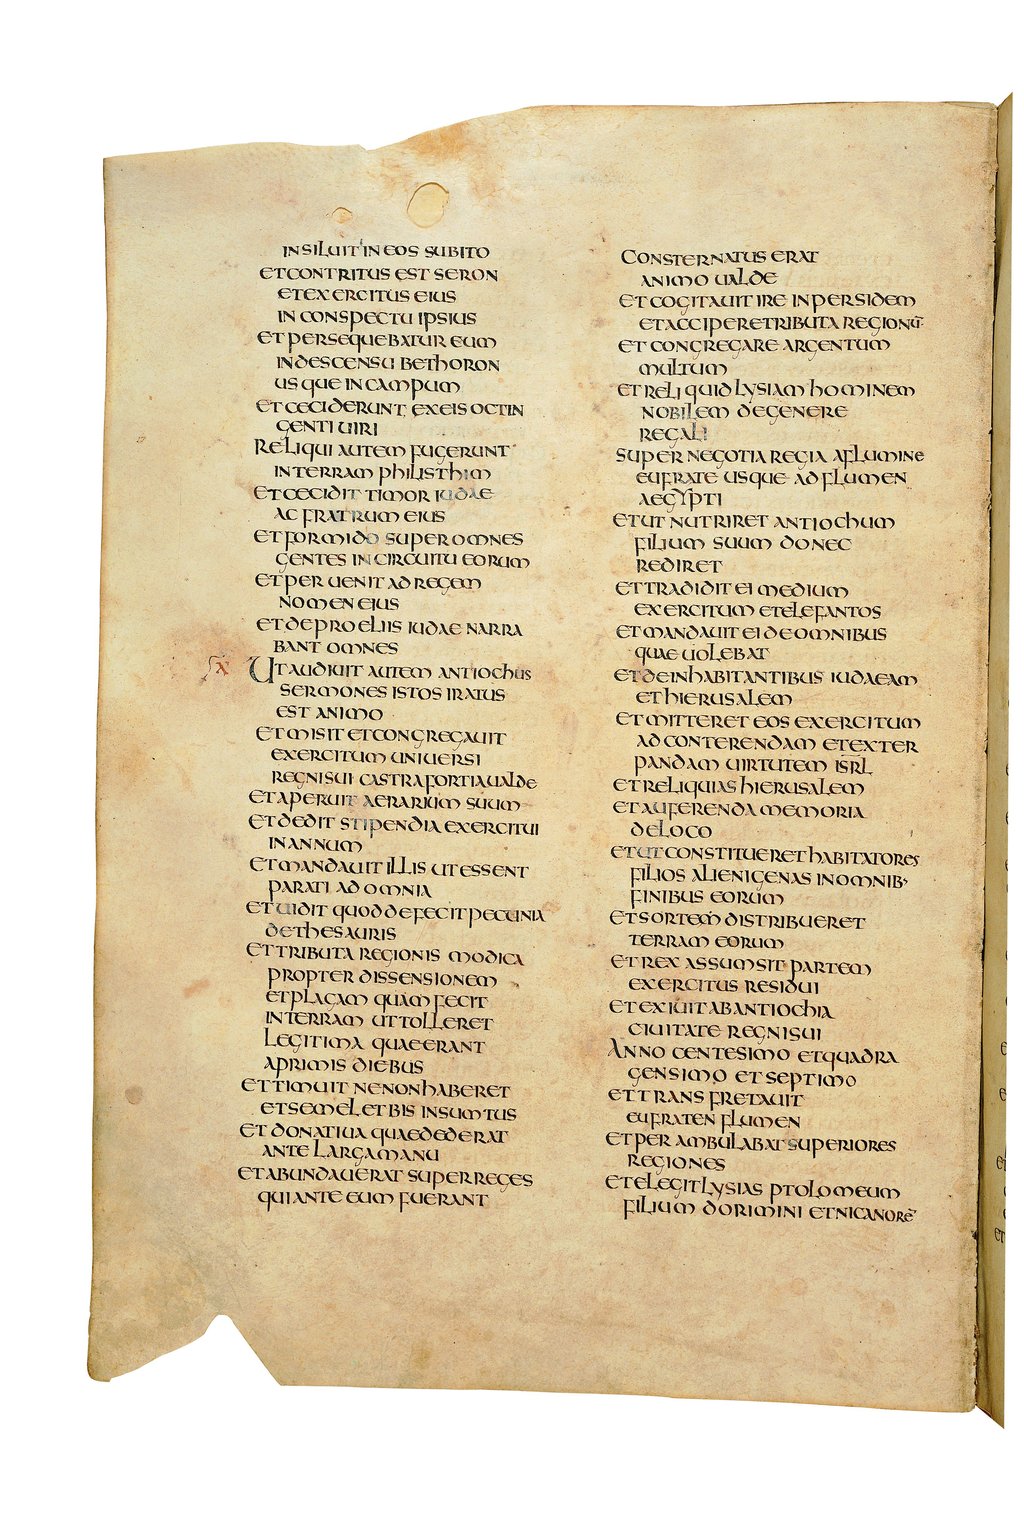 INSILUIT IN EOS SUBITO
ET CONTRITUS EST SERON
ET EXERCITUS EIUS
IN CONSPECTU IPSIUS
ET PERSEQUEBATUR EUM
IN DESCENSU BETHORON
USQUE IN CAMPUM
ET CECIDERUNT EX EIS OCTIN
GENTI UIRI
RELIQUI AUTEM FUGERUNT
IN TERRAM PHILISTHIM
ET CECIDIT TIMOR IUDAE
AC FRATRUM EIUS
ET FORMIDO SUPER OMNES
GENTES IN CIRCUITU EORUM
ET PERUENIT AD REGEM
NOMEN EIUS
ET DE PROELIIS IUDAE NARRA
BANT OMNES
UT AUDIUIT AUTEM ANTIOCHUS
SERMONES ISTOS IRATUS
EST ANIMO
ET MISIT ET CONGREGAUIT
EXERCITUM UNIUERSI
REGNI SUI CASTRA FORTIA UALDE
ET APERUIT AERARIUM SUUM
ET DEDIT STIPENDIA EXERCITUI
IN ANNUM
ET MANDAUIT ILLIS UT ESSENT
PARATI AD OMNIA
ET UIDIT QUOD DEFECIT PECUNIA
DE THESAURIS
ET TRIBUTA REGIONIS MODICA
PROPTER DISSENSIONEM
ET PLAGAM QUAM FECIT
IN TERRAM UT TOLLERET
LEGITIMA QUAE ERANT
A PRIMIS DIEBUS
ET TIMUIT NE NON HABERET
ET SEMEL ET BIS IN SUMTUS
ET DONATIUA QUAE DEDERAT
ANTE LARGA MANU
ET ABUNDAUERAT SUPER REGES
QUI ANTE EUM FUERANT
CONSTERNATUS ERAT
ANIMO UALDE
ET COGITAUIT IRE IN PERSIDEM
ET ACCIPERE TRIBUTA REGIONŪ
ET CONGREGARE ARGENTUM
MULTUM
ET RELIQUID LYSIAM HOMINEM
NOBILEM DE GENERE
REGALI
SUPER NEGOTIA REGIA A FLUMINE
EUFRATE USQUE AD FLUMEN
AEGYPTI
ET UT NUTRIRET ANTIOCHUM
FILIUM SUUM DONEC
REDIRET
ET TRADIDIT EI MEDIUM
EXERCITUM ET ELEFANTOS
ET MANDAUIT EI DE OMNIBUS
QUAE UOLEBAT
ET DE INHABITANTIBUS IUDAEAM
ET HIERUSALEM
ET MITTERET EOS EXERCITUM
AD CONTERENDAM ET EXTER
PANDAM UIRTUTEM ISRL̄
ET RELIQUIAS HIERUSALEM
ET AUFERENDA MEMORIA
DE LOCO
ET UT CONSTITUERET HABITATORES
FILIOS ALIENIGENAS IN OMNIB·
FINIBUS EORUM
ET SORTEM DISTRIBUERET
TERRAM EORUM
ET REX ASSUMSIT PARTEM
EXERCITUS RESIDUI
ET EXIUIT AB ANTIOCHIA
CIUITATE REGNI SUI
ANNO CENTESIMO ET QUADRA
GENSIMO ET SEPTIMO
ET TRANSFRETAUIT
EUFRATEN FLUMEN
ET PERAMBULABAT SUPERIORES
REGIONES
ET ELEGIT LYSIAS PTOLOMEUM
FILIUM DORIMINI ET NICANORĒ